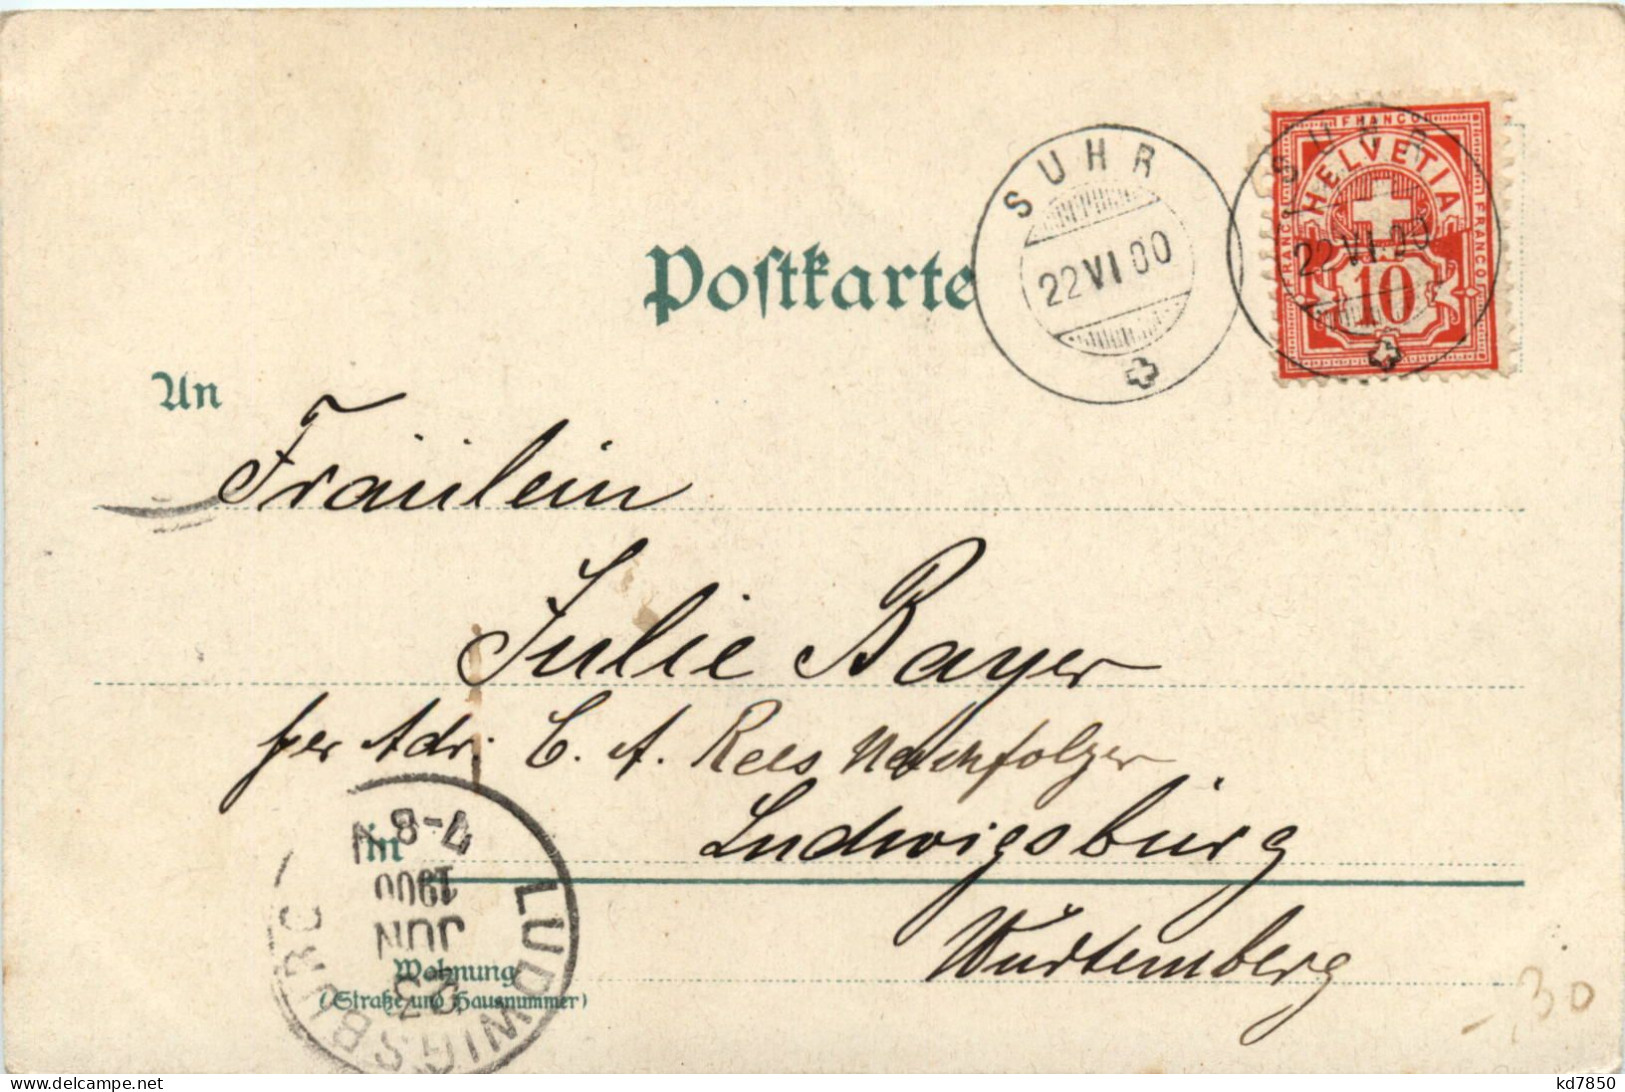 Postkarte
SUHR
22 VI 00
SUHR
FRANCO
FRANCO
FRANCO
HELVETIA
22 VI 00
10
An
Fräulein
Julie Bayer
per Adr. C. A. Rees Nachfolger
in Ludwigsburg
Würtemberg
LUDWIGSBURG
23
JUN
1900
7-8 N
Wohnung
(Straße und Hausnummer)
-,30
kd7850